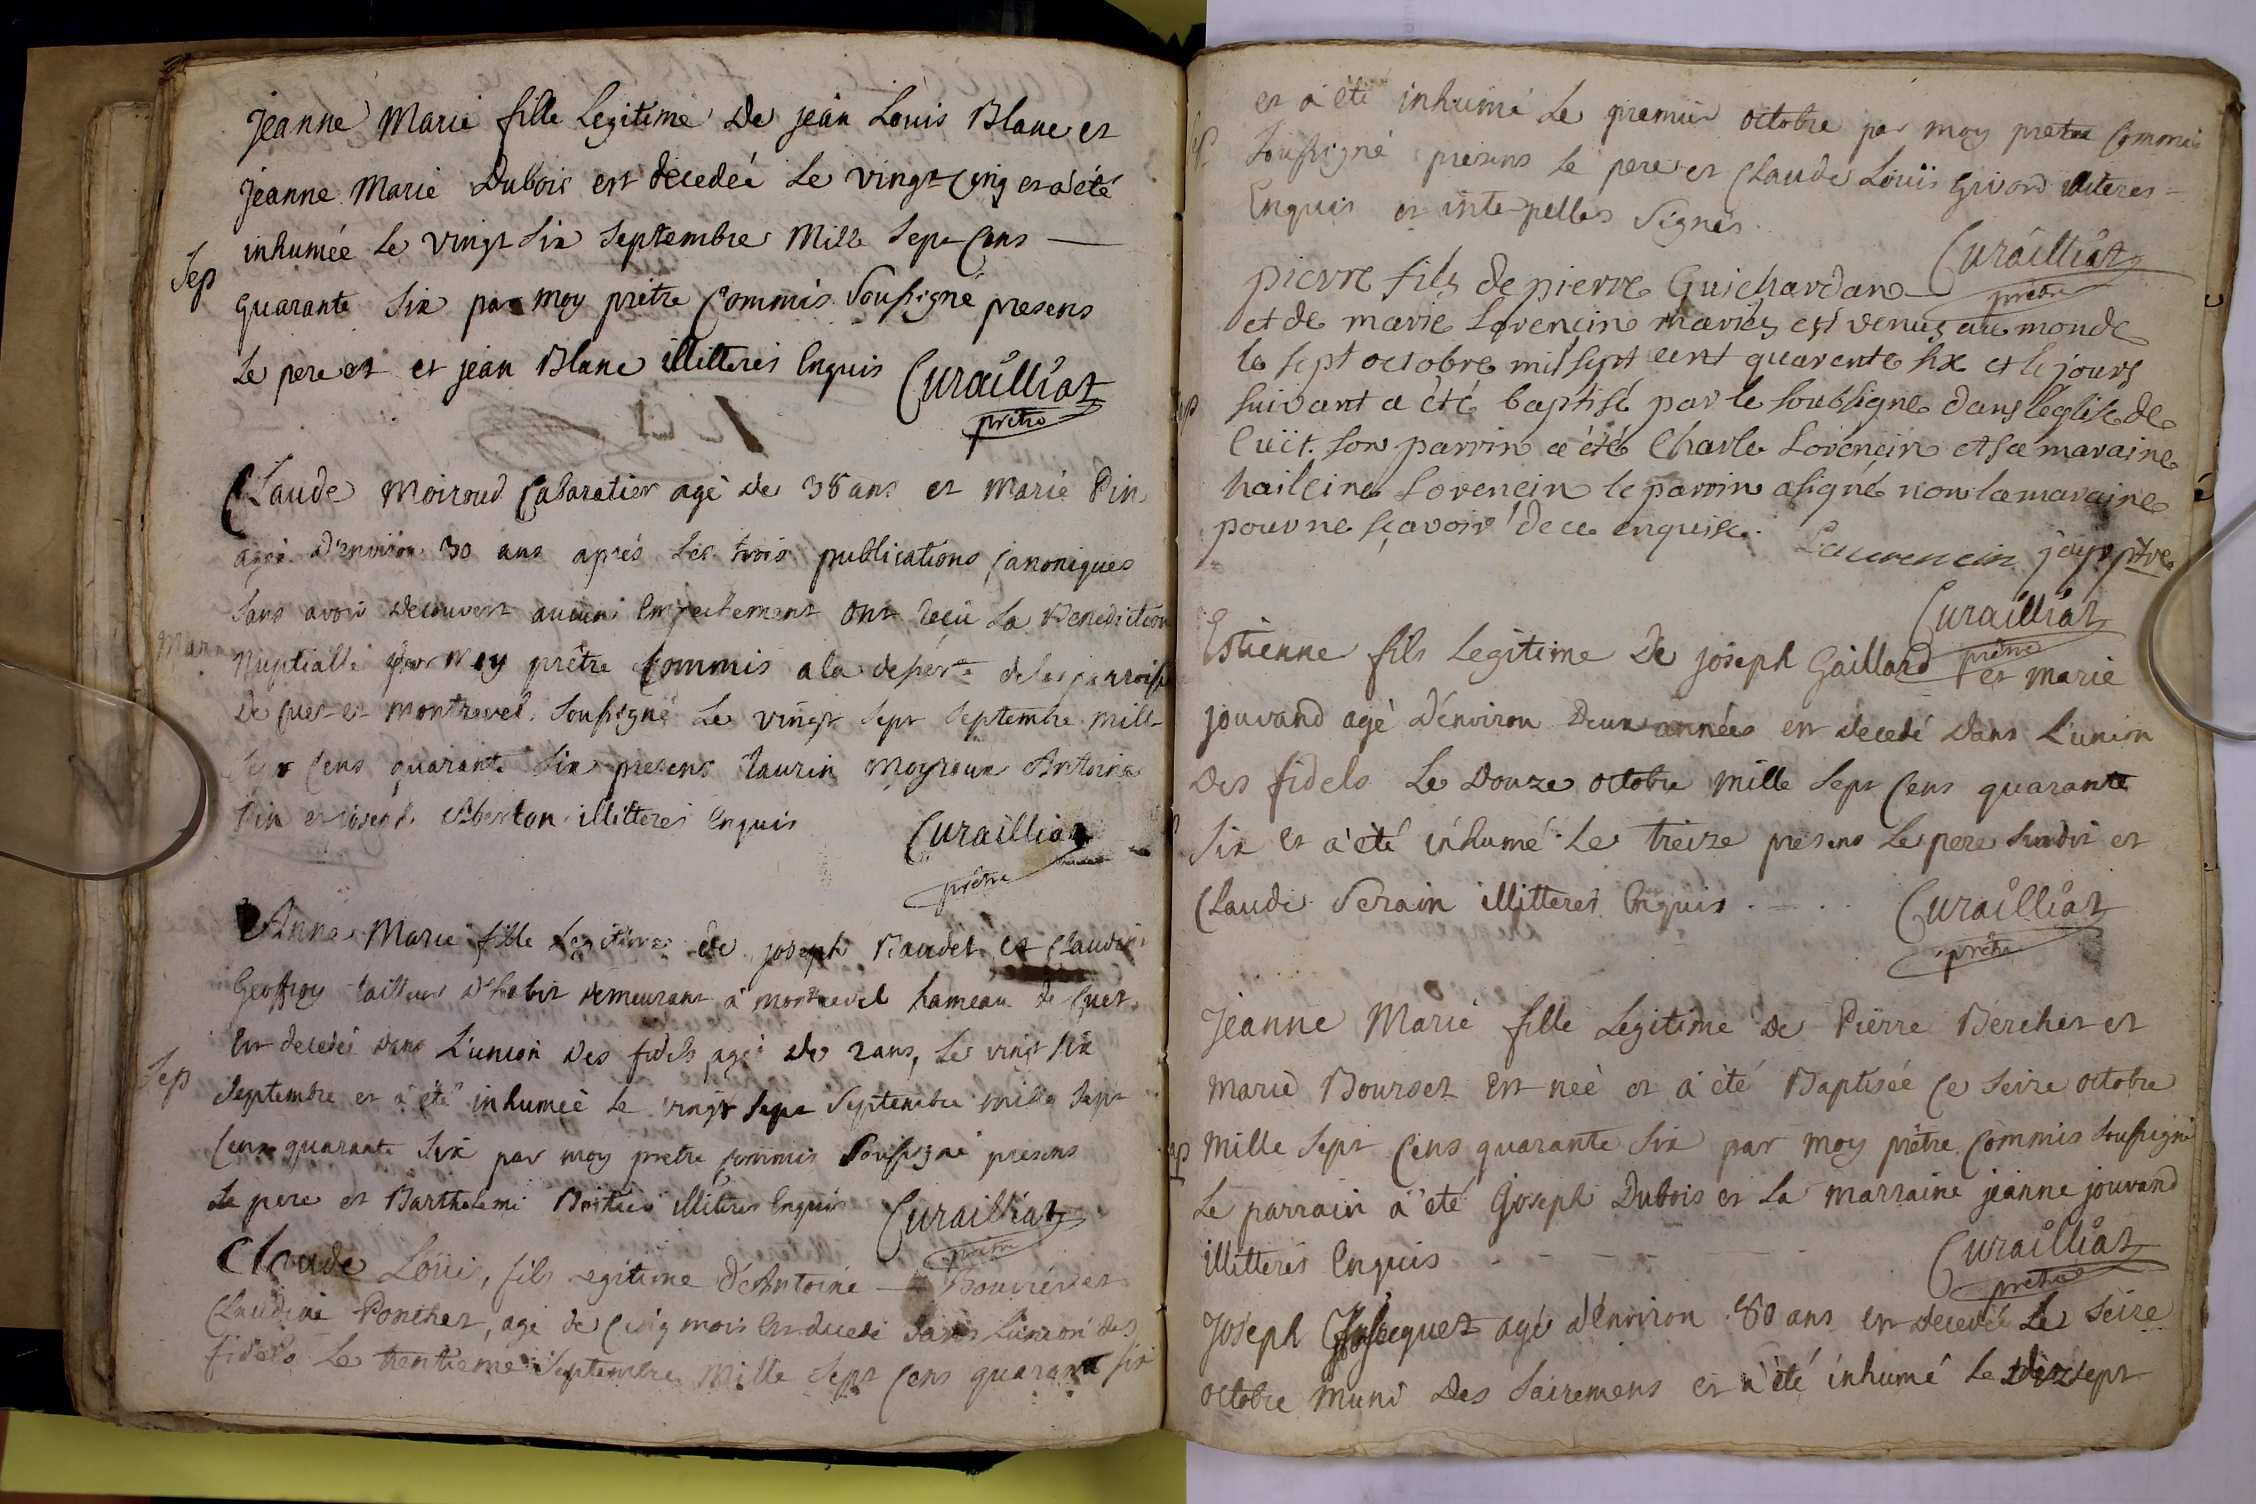 Jeanne Marie fille Legitime De jean Loüis Blanc et
Jeanne Marie Dubois est decedeé Le vingt Cinq et a été
inhumée Le vingt six septembre Mille sept Cens —
Sep
quarante six par moy prêtre Commis soussigné presens
Le pere et et jean Blanc illitterés Enquis Curailliat
prêtre
Claude Moiroud Cabaratier agé de 38 ans et Marie Pin
agée d'environ 30 ans aprés les trois publications Canoniques
sans avoir decouvert aucun Empechement ont reçu La Benediction
Mar
Nuptialle par Moy prêtre Commis a la deserte de la parroisse
De Cuet et Montrevel soussigné Le vingt sept septembre mille
sept Cens quarante six presens taurin Moyroux Antoine
Pin et joseph illitterés Enquis
Curailliat
prêtre
Anne Marie fille Legitime de joseph Baudet et Claudine
Geoffroy tailleur d'habit demeurant a montrevel hameau de Cuet
Est decedeé dans L'union des fidels agée de 2 ans, Le vingt six
Sep
septembre et a été inhumeé Le vingt sept septembre mille sept
Cens quarante six par moy pretre commis soussigné presens
Le pere et Barthelemi illitteres Enquis Curailliat
prêtre
Claude Loüis, fils Legitime d'Antoine — Bouvier et
Claudine Ponthet, agé de Cinq mois Est decedé dans L'union des
fidels Le trentieme septembre Mille sept Cens quarante six
et a été inhumé Le premier octobre par moy pretre Commis
Sep
soussigné presens Le pere et Claude Loüis Givord illiteres
Enquis et interpelles Signés.
Curailliat
prêtre
pierre fils de pierre Guichardan
et de marie Lorencin mariés est venus au monde
le sept octobre mil sept cent quarente six et le jours
suivant a été baptisé par le soubsigne dans l'eglise de
Cuët. son parrin a été Charle Lorencin et sa maraine
Lorencin le parrin a signé non la maraine
pour ne sçavoir de ce enquise.
Laurencin jayr ptre
Curailliat
prêtre
Estienne fils Legitime De joseph Gaillard et Marie
jouvand agé d'environ Deux années est decedé dans L'union
Des fidels Le Douze octobre mille sept Cens quarante
six et a été inhumé Le treize presens Le pere susdit et
Claude Serain illitterés Enquis . — . .
Curailliat
prêtre
Jeanne Marie fille Legitime De Pierre Berchet et
Marie Bourset Est neé et a été Baptiseé Ce seize octobre
mille sept Cens quarante six par moy prêtre Commis soussigné
Le parrain a été joseph Dubois et La Marraine jeanne jouvand
illitterés Enquis
Curailliat
prêtre
Joseph agé d'environ 80 ans est decedé Le seize
octobre muni Des sairemens et a été inhumé Le dix sept